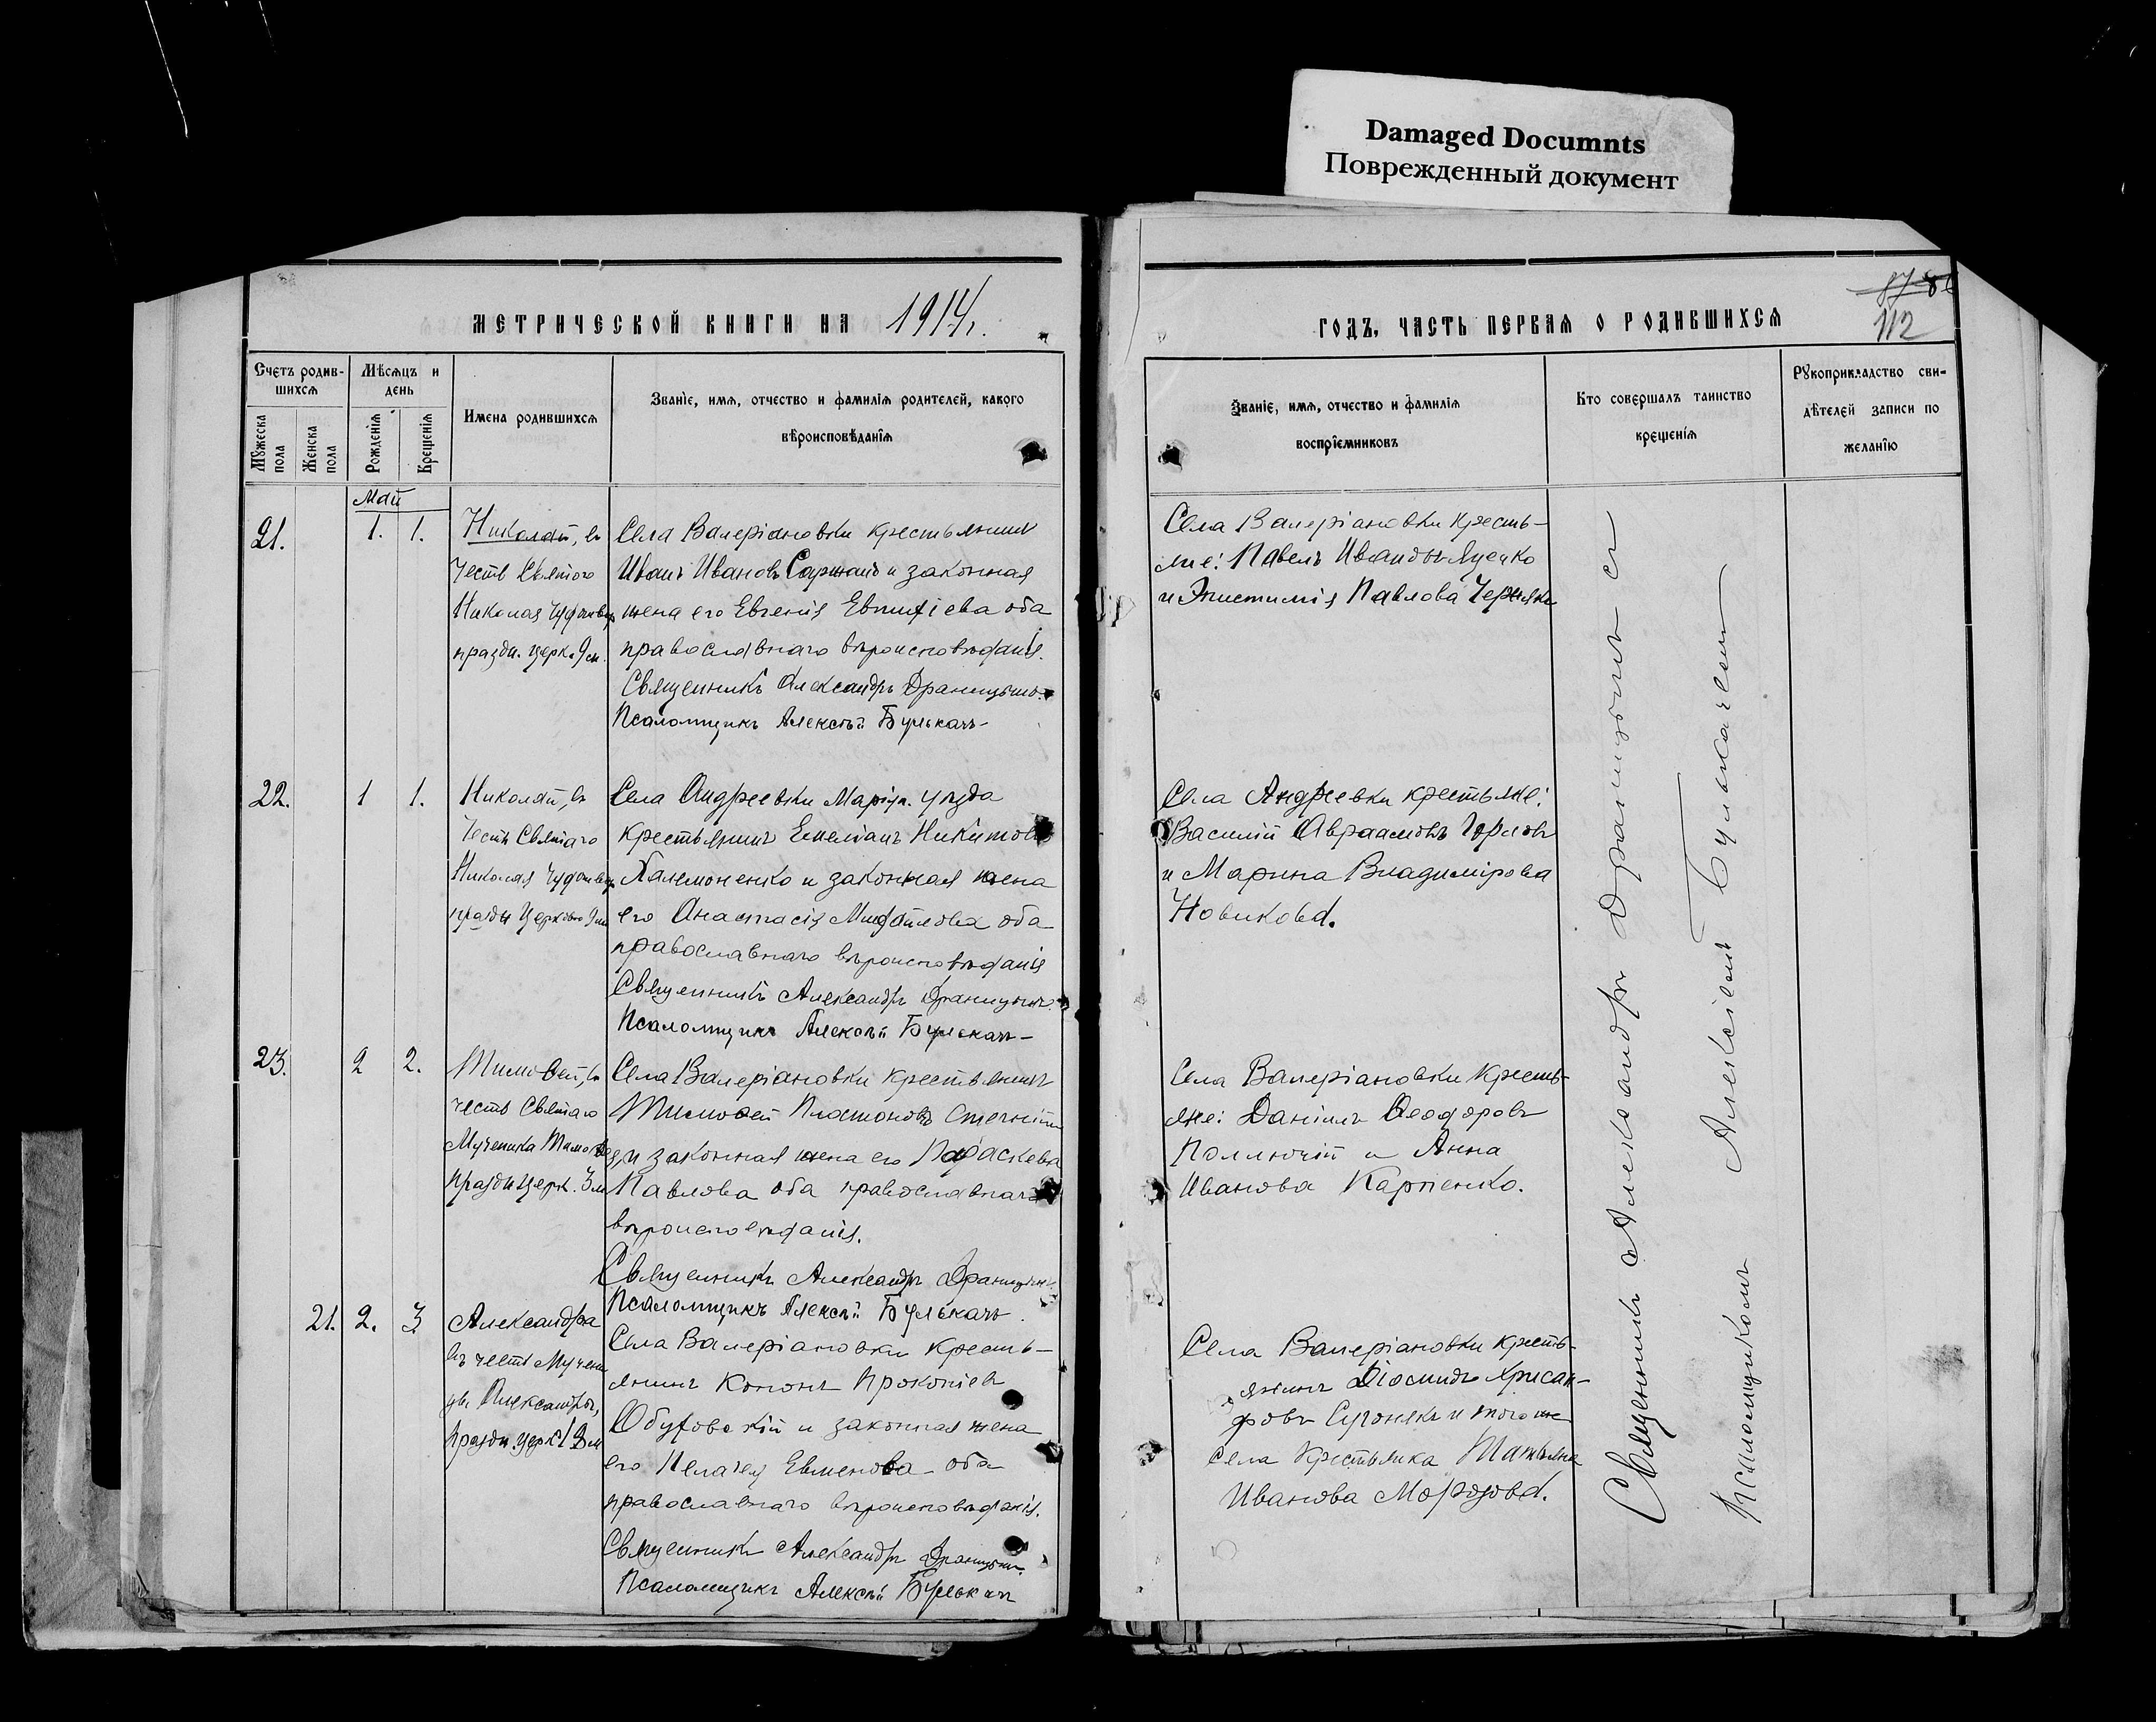 Damaged Documnts
Поврежденный документ
МЕТРИЧЕСКОЙ КНИГИ НА 1914 г.
Счетъ родив-
шихся
Мѣсяцъ и
день
Мужеска
пола
Женска
пола
Рожденія
Крещенія
Имена родившихся
Званіе, имя, отчество и фамилія родителей, какого
вѣроисповѣданія
Май
21.
1. 1.
Николай, въ
честь Святого
Николая Чудотвор
праздн. церк. 9 см.
Села Валеріановки крестьянинъ
Иванъ Ивановъ и законная
жена его Евгенія Евпифіева оба
православнаго вѣроисповѣданія.
Священникъ Александръ Драницынъ.
Псаломщикъ Алексѣй Булькачъ
22.
1 1.
Николай, въ
Честь Святаго
Николая Чудотвор
праздн Церковью 9 мая
Села Андреевки Маріуп. уѣзда
крестьянинъ Емеліанъ Никитовъ
Халимоненко и законная жена
его Анастасія Михайлова оба
православнаго вѣроисповѣданія
Священникъ Александръ Драницынъ.
Псаломщикъ Алексѣй Булькачъ
23.
2 2.
Тимоѳей, въ
честь Святаго
Мученика Тимоѳея,
праздн церк. 3 мая
Села Валеріановки крестьянинъ
Тимоѳей Платоновъ
и законная жена его Параскева
Павлова оба православнаго
вѣроисповѣданія.
Священникъ Александръ Драницынъ
Псаломщикъ Алексѣй Булькачъ.
21. 2. 3
Александра
въ честь Мучени
цы Александры,
праздн. церк.
Села Валеріановки кресть-
янинъ Кононъ Прокопіев
Обуховскій и законная жена
его Пелагея Евменова оба
православнаго вѣроисповѣданія.
Священникъ Александръ Драницынъ.
Псаломщикъ Алексѣй Булькачъ
ГОДЪ, ЧАСТЬ ПЕРВАЯ О РОДИВШИХСЯ
87 86
112
Званіе, имя, отчество и фамилія
воспріемниковъ
Кто совершалъ таинство
крещенія
Рукоприкладство сви-
дѣтелей записи по
желанію
Села Валеріановки кресть-
яне: Павелъ Ивановъ Яценко
и Эпистимія Павлова Черняк
Села Андреевки крестьяне:
Василій Авраамовъ Горловъ
и Марина Владимірова
Новикова.
Села Валеріановки кресть-
яне: Даніилъ Ѳеодоровъ
Поллючій и Анна
Иванова Карпенко.
Села Валеріановки кресть-
янинъ Діомидъ Хрисан-
фовъ Сугонякъ и того же
села крестьянка Татьяна
Иванова Морозова.
Священникъ Александръ Драницынъ съ
Псаломщикомъ Алексіемъ Булькачемъ